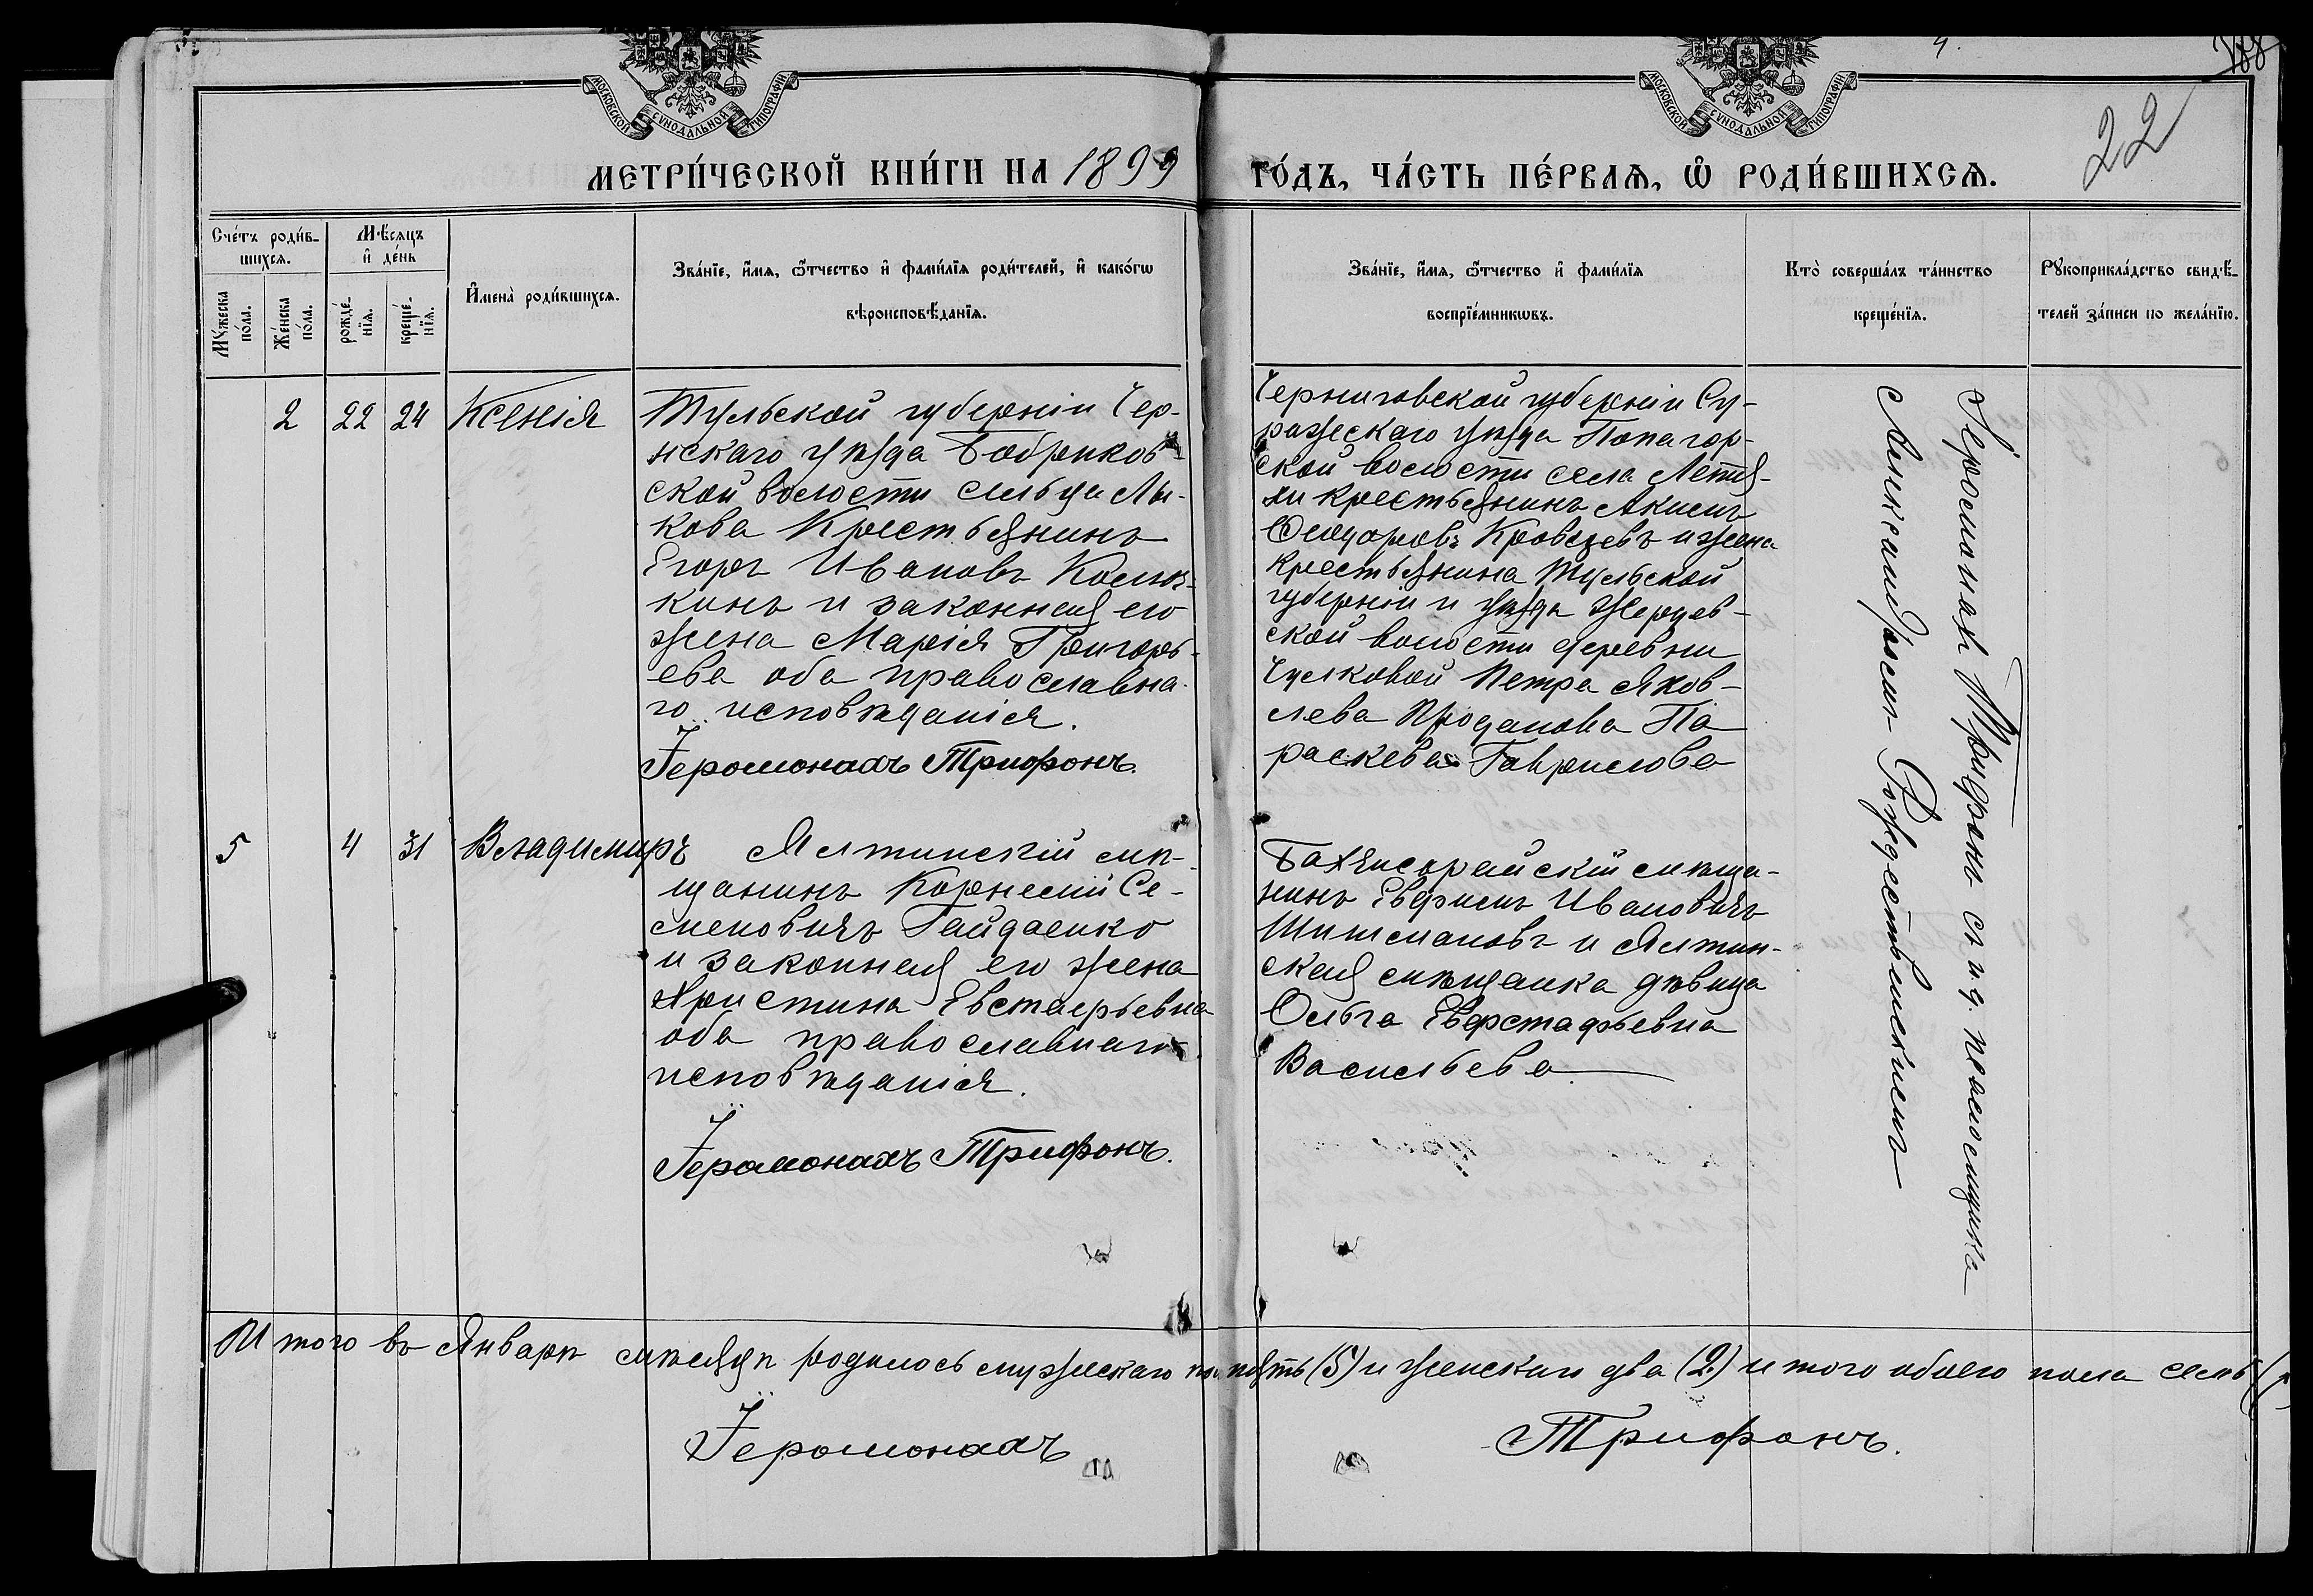 4.
188
22
МОСКОВСКОЙ СУНОДАЛЬНОЙ ТИПОГРАФІИ
МОСКОВСКОЙ СУНОДАЛЬНОЙ ТИПОГРАФІИ
МЕТРИ́ЧЕСКОЙ КНИ́ГИ НА 1899 ГО́ДЪ, ЧА́СТЬ ПЕ́РВАѦ, Ѡ РОДИ́ВШИХСѦ.
Сче́тъ роди́в-
шихсѧ.
Мꙋ́жеска по́ла.
Же́нска по́ла.
Мѣ́сѧцъ
и҆ де́нь
рожде́-
нїѧ.
креще́-
нїѧ.
И҆мена̀ роди́вшихсѧ.
Зва́нїе, и҆́мѧ, ѻ҆́тчество и҆ фами́лїѧ роди́телей, и҆ како́гѡ
вѣроисповѣ́данїѧ.
Зва́нїе, и҆́мѧ, ѻ҆́тчество и҆ фами́лїѧ
воспрїе́мникѡвъ.
Кто̀ соверша́лъ та́инство
креще́нїѧ.
Рꙋкоприкла́дство свидѣ́-
телей за́писи по жела́нїю.
2 22 24 Ксенія
Тульской губерніи Чер-
нскаго уѣзда Бобриков-
ской волости сельца Лы-
кова Крестьянинъ
Егоръ Ивановъ
кинъ и законная его
жена Марія Григорь-
ева оба православна-
го исповѣданія.
Іеромонахъ Трифонъ.
Черниговской губерніи Су-
ражскаго уѣзда Попагор-
ской волости села Летя-
хи крестьянинъ Акимъ
Феодоровъ Кравцевъ и жена
крестьянина Тульской
губерніи и уѣзда
ской волости деревни
Чулковой Петра Яков-
лева Проданова Па
раскева Гаврилова
Іеромонахъ Трифонъ съ и.д. псаломщика
Александромъ Рождественскимъ
5 4 31 Владимиръ
Ялтинскій мѣ-
щанинъ Корнелій Се-
меновичъ Гайдаенко
и законная его жена
Христина Евстафьевна
оба православнаго
исповѣданія.
Іеромонахъ Трифонъ.
Бахчисарайскій мѣща-
нинъ Ефримъ Ивановичъ
Шишмановъ и Ялтин-
ская мѣщанка дѣвица
Ольга Евфстафьевна
Васильева
Итого въ Январѣ мѣсяцѣ родилось мужескаго пола пять (5) и женскаго два (2) итого обоего пола семь (7
Іеромонахъ Трифонъ.